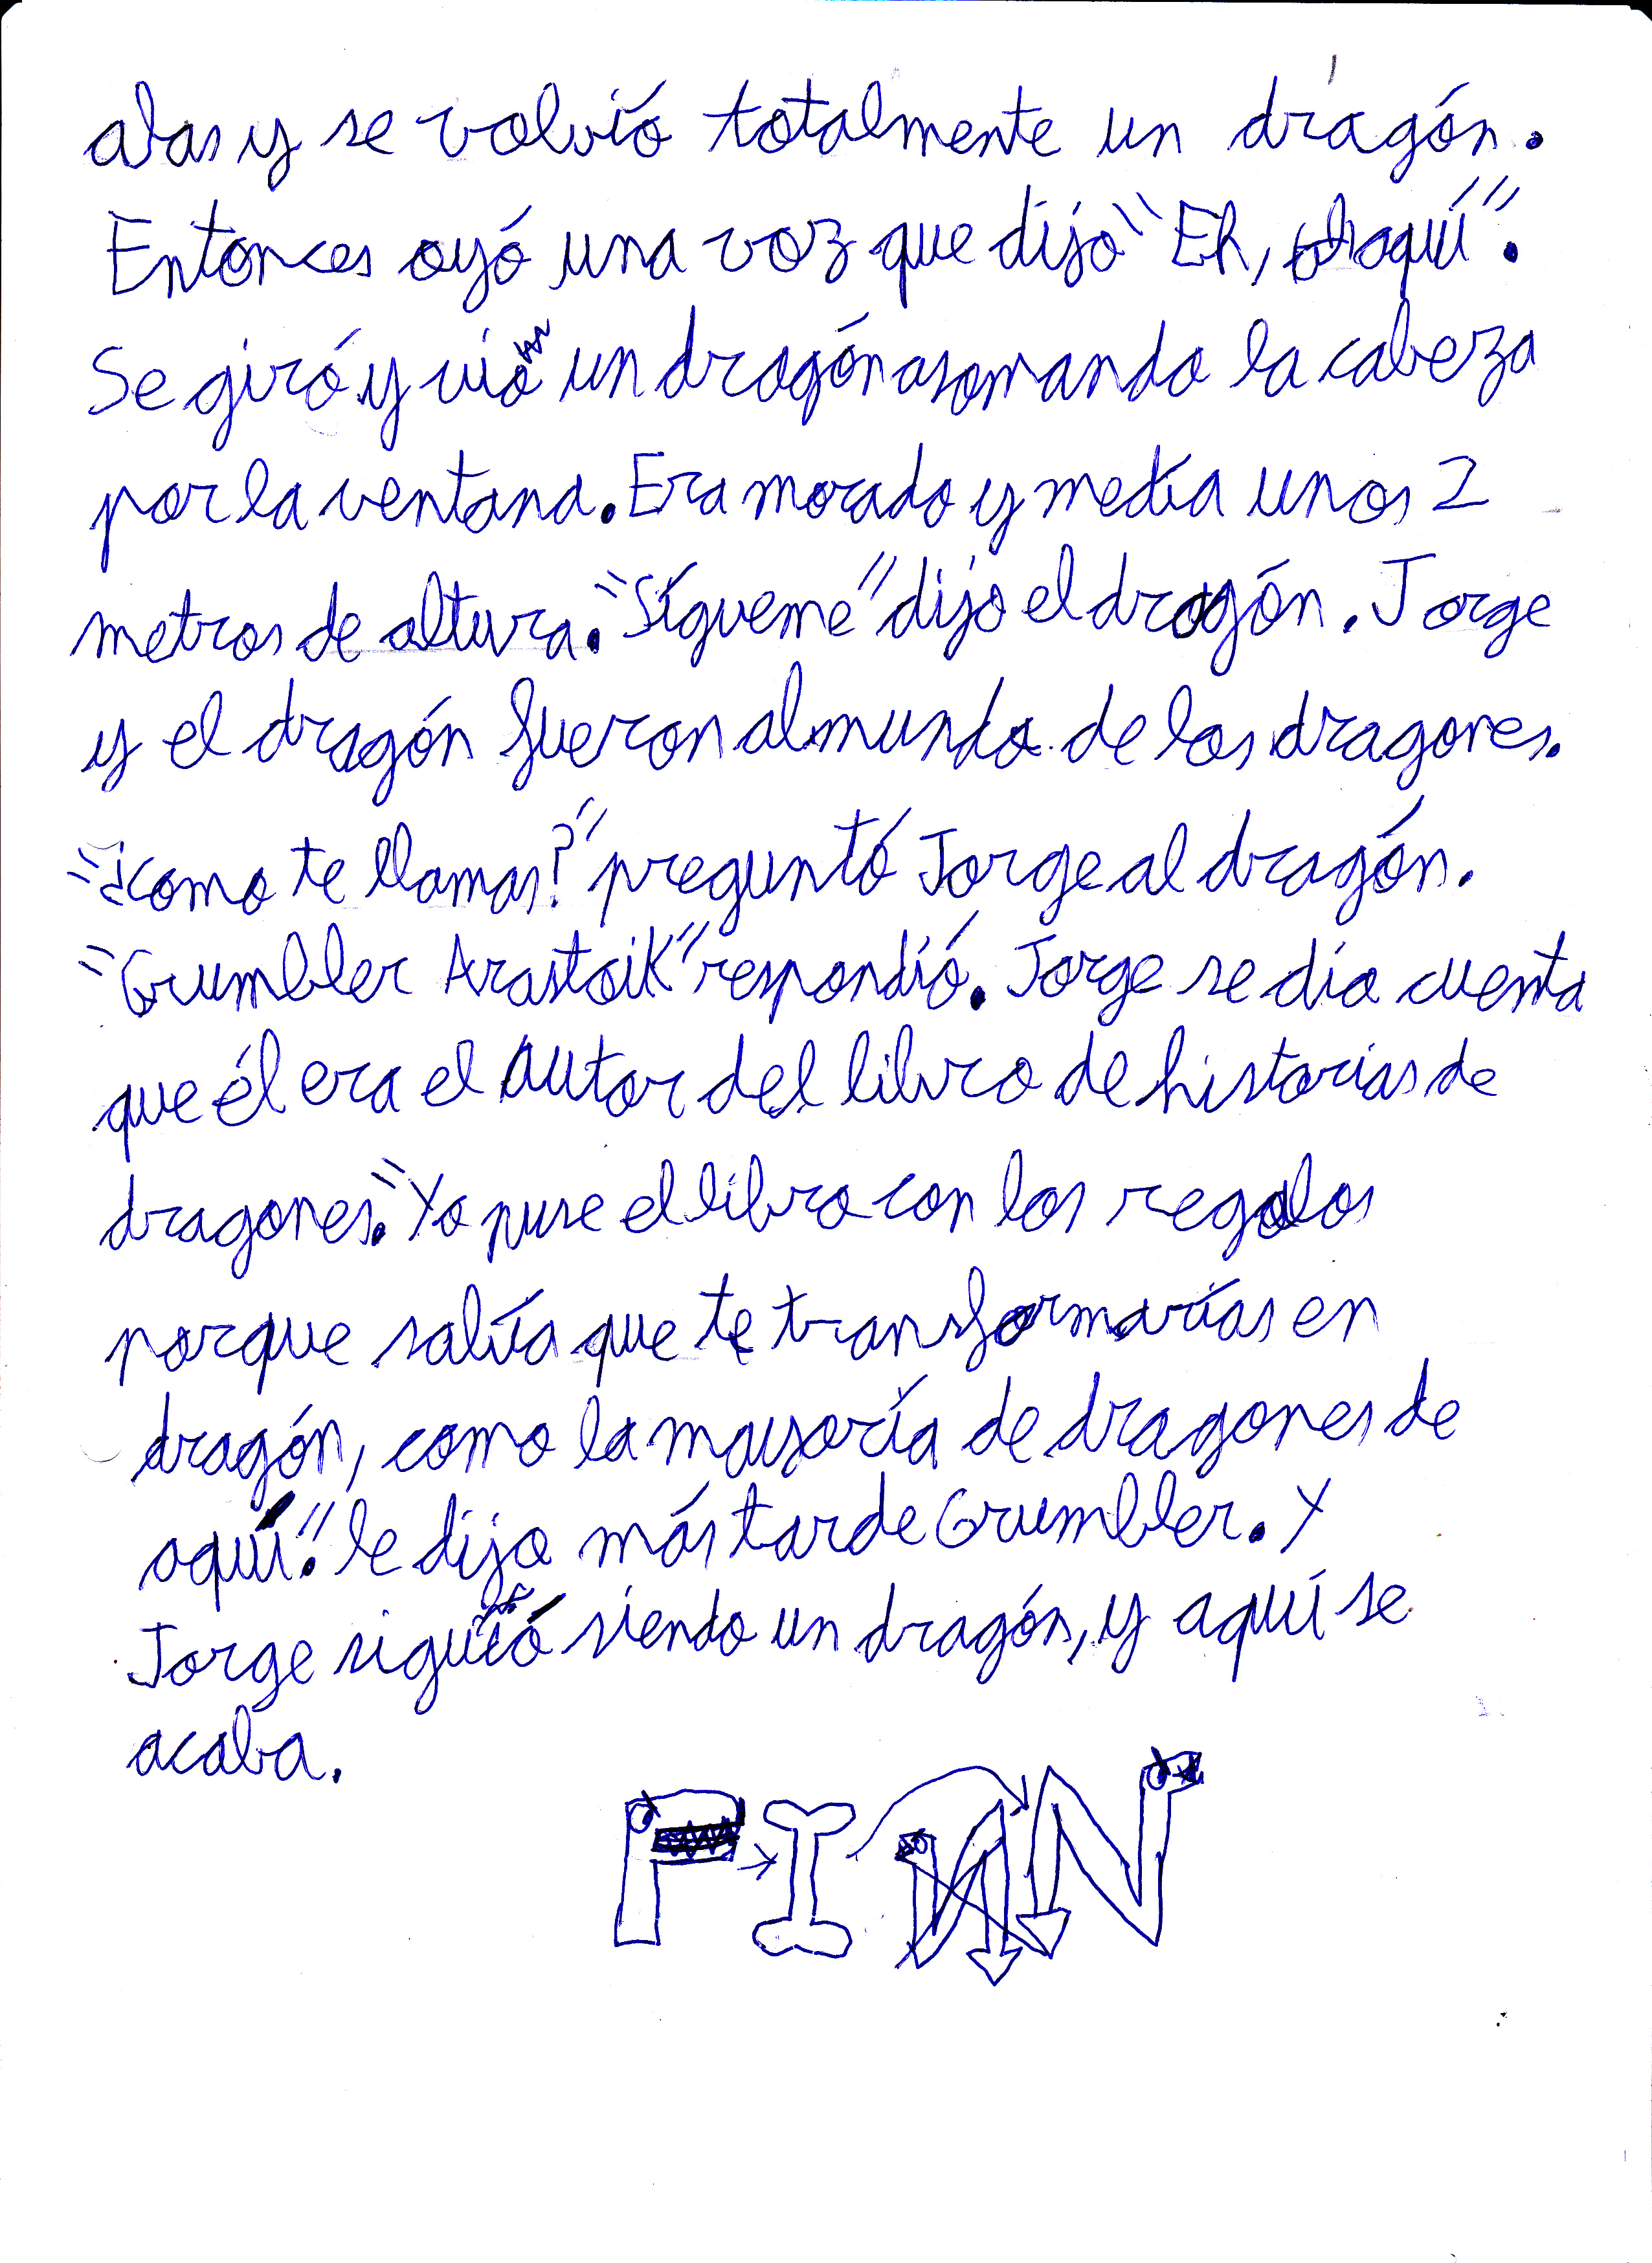 alas y se volvió totalmente un dragón.
Entonces oyó una voz que dijo "Eh, aquí".
Se giró y vió un dragón asomando la cabeza
por la ventana. Era morado y media unos 2
metros de altura. "Sígueme" dijo el dragón. Jorge
y el dragón fueron al mundo de los dragones.
"¿como te llamas?" preguntó Jorge al dragón.
"Grumbler Arastoik" respondió. Jorge se dio cuenta
que él era el autor del libro de historias de
dragones. "Yo puse el libro con los regalos
porque sabía que te transformarías en
dragón, como la mayoría de dragones de
aquí." le dijo más tarde Grumbler. Y
Jorge siguió siendo un dragón, y aquí se
acaba.
FIN